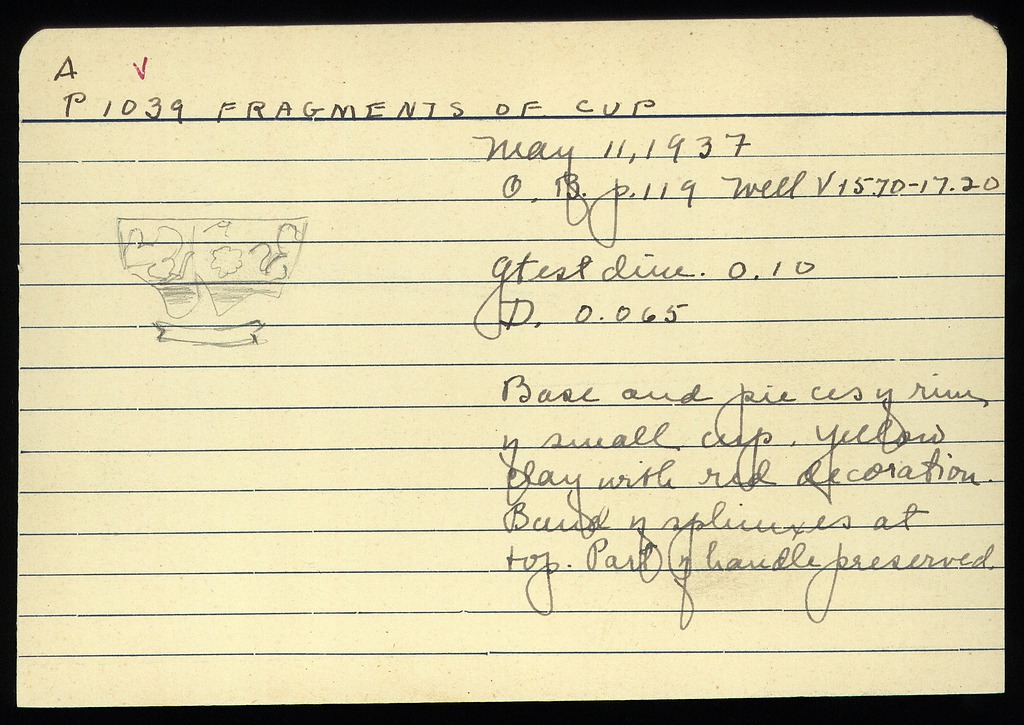 A V
P 1039 FRAGMENTS OF CUP
May 11, 1937
O. B. p. 119 Well V 15.70-17.20
gtest dim. 0.10
D. 0.065
Base and pieces of rim
of small cup. Yellow
clay with red decoration.
Band of sphinxes at
top. Part of handle preserved.